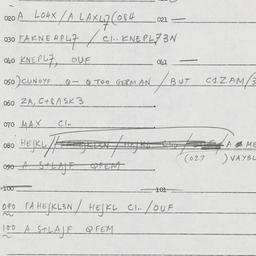 020 A LO4X / A LAXL7(084 021 —
030 FAKNEAPL7 / CL.. KNEPL73N
040 KNEPL7, OUF 041 —
050 )CUNOYF Q— Q TOO GERMAN / BUT C1ZAM/3
060 ZA, C+8ASK3
070 MAX CL.
080 HEJKL/ / A
(027 ) VAYBL
090 A S+LAJF QFEM
100 101
090 FAHE/KL3N / HEJKL CL.. / OUF
100 A S+LAJF QFEM